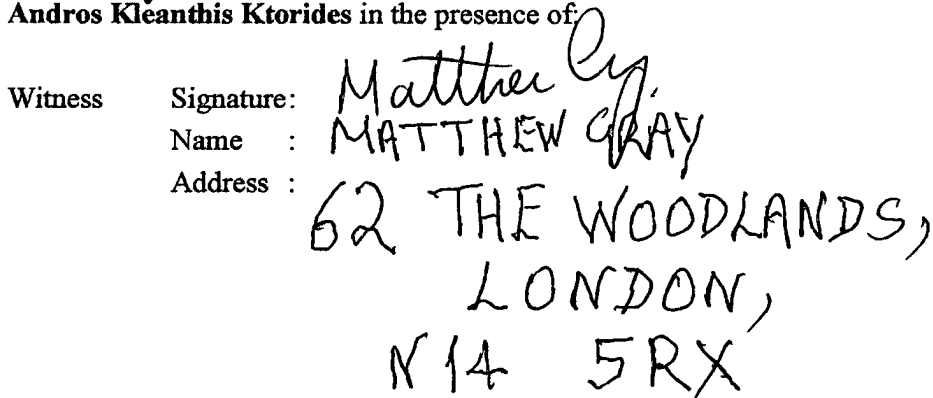 Andros Kleanthis Ktorides in the presence of:
Witness Signature: Matthew Gray
Name : MATTHEW GRAY
Address : 62 THE WOODLANDS,
LONDON,
N14 5RX